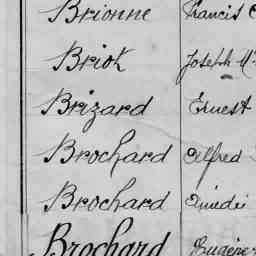 Brionne Francis
Briot Joseph M
Brizard Ernest
Brochard Alfred
Brochard Amédé
Brochard Eugène